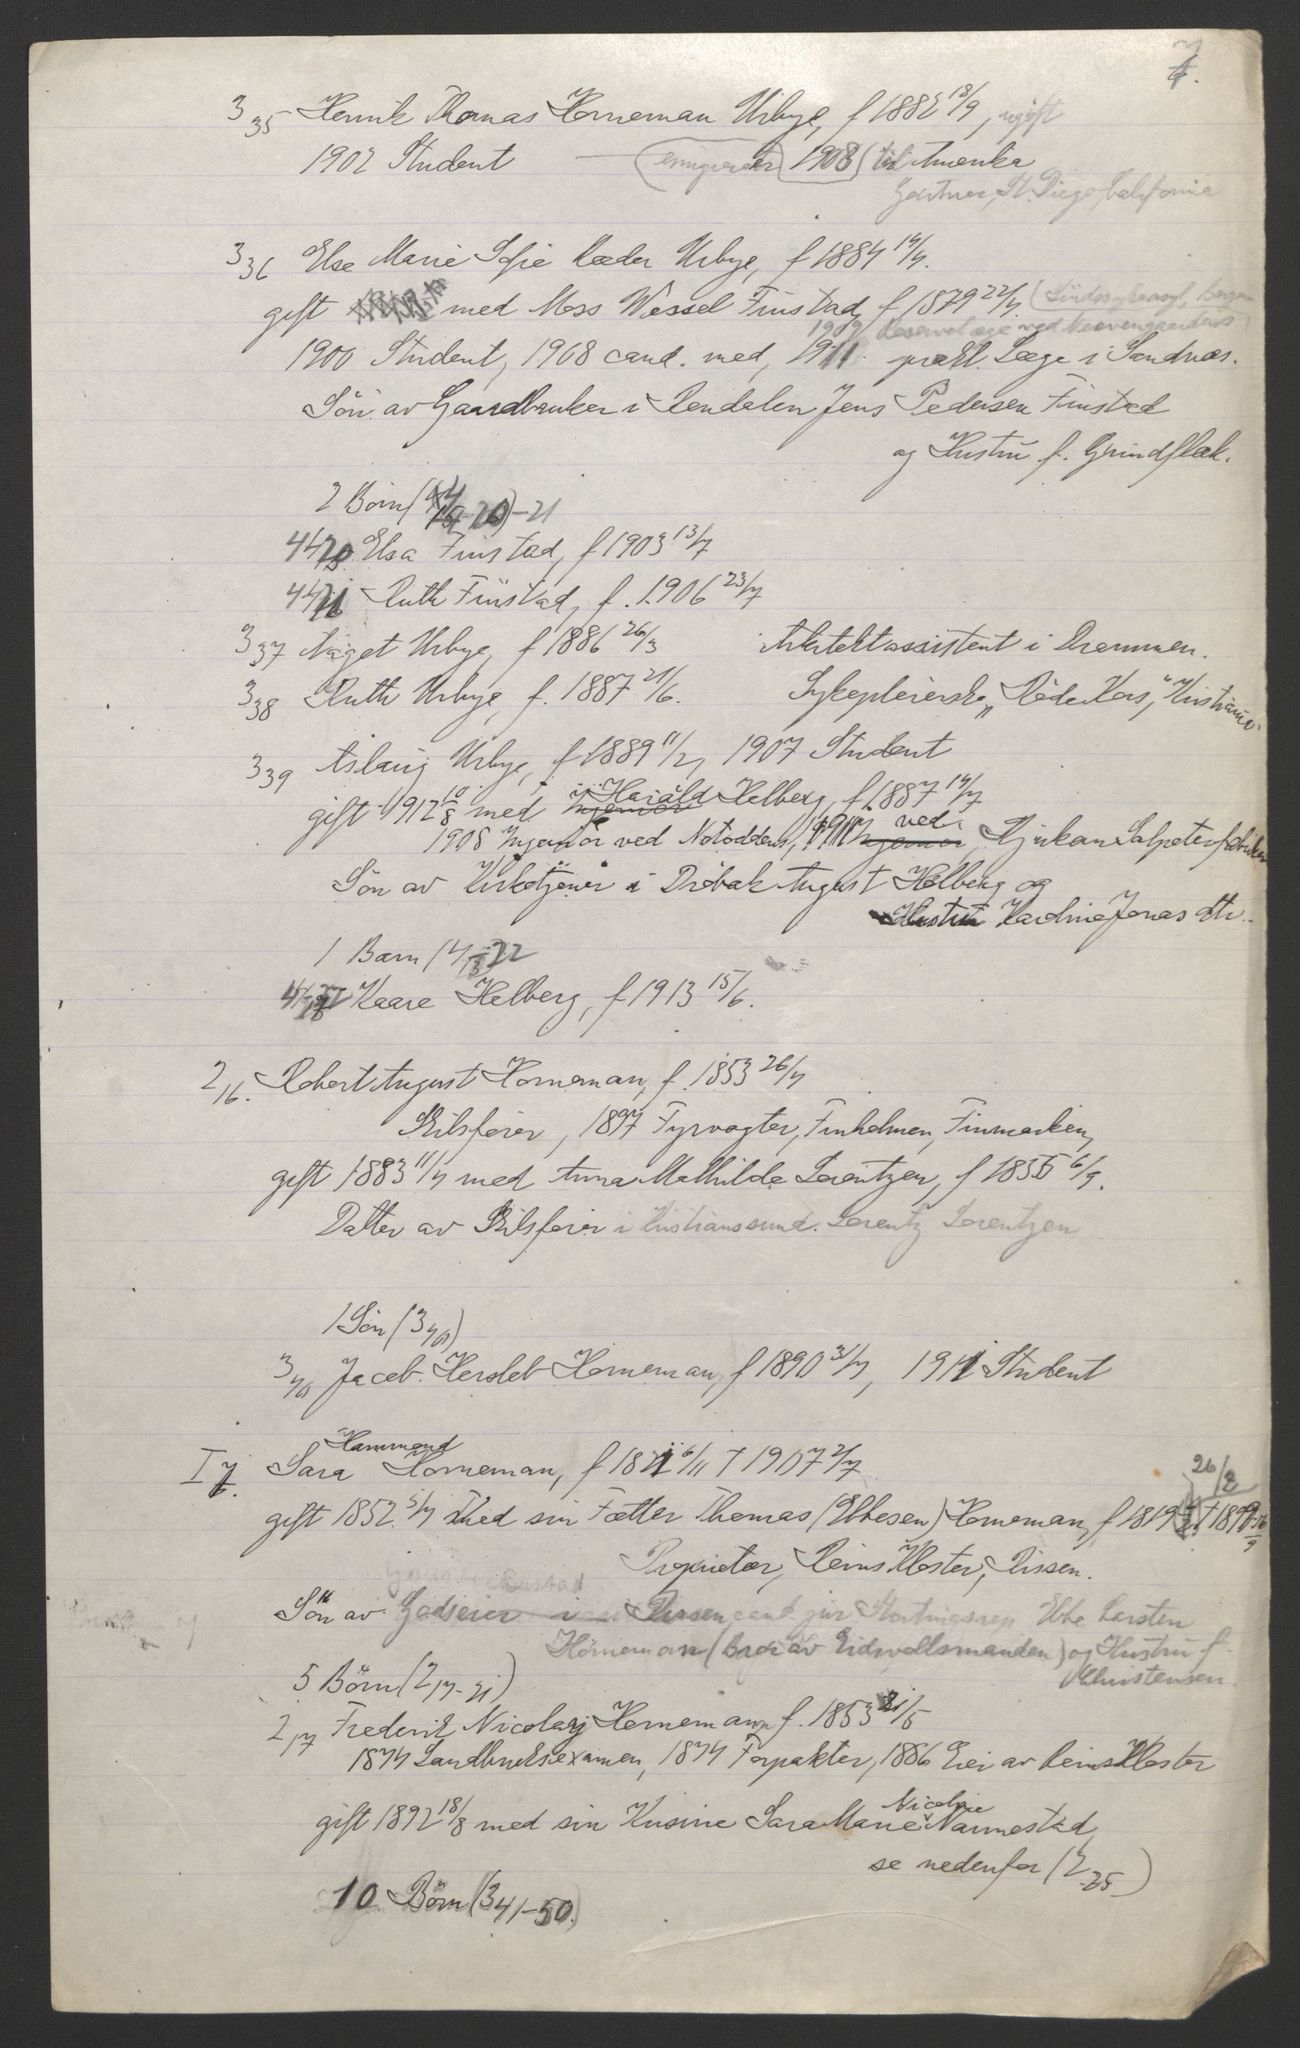 7.
3 35 Henrik Thomas Horneman Urbye, f 1882 18/9, ugift
1902 Student — emigreret 1908 til Amerika
Gartner, St. Diego, California
3 36 Else Marie Sofie Ræder Urbye, f 1884 14/4.
gift med Moss Wessel Finstad, f 1879 22/4. (Sindssykeasyl, Bergen
1909 Reservelæge ved Neevengaardens)
1900 Student, 1908 cand. med, 1911 prakt. Læge i Sandnæs.
Sön av Gaardbruker i Rendalen Jens Pedersen Finstad
og Hustru f. Grindflek.
2 Börn (4 20)-21
4 20 Elsa Finstad, f 1903 13/7
4 21 Ruth Finstad, f. 1906 23/7
3 37 Naget Urbye, f 1886 26/3 Arkitektassistent i Drammen.
3 38 Ruth Urbye, f. 1887 21/6. Sykepleierske „Röde Kors," Kristiania
3 39 Aslaug Urbye, f 1889 11/2, 1907 Student
gift 1912 10/8 med Ingeniör Harald Helberg, f 1887 14/7
1908 Ingeniör ved Notodden, 1911 Ingeniör ved Rjukan Salpeterfabriker
Sön av Kirketjener i Dröbak August Helberg og
Hustru Karoline Jonas dtr.
1 Barn (4 22
4 22 Kaare Helberg, f 1913 15/6.
2 16. Robert August Horneman, f. 1853 26/4
Skibsförer, 1897 Fyrvogter, Finholmen, Finmarken,
gift 1883 11/4 med Anna Mathilde Lorentzen, f 1855 6/9.
Datter av Skibsförer i Kristianssund. Lorentz Lorentzen
1 Sön (3 40)
3 40 Jacob Hersleb Horneman, f 1890 3/4, 1911 Student
I 7. Sara Hammond Horneman, f 1821 6/11 † 1907 2/7
gift 1852 5/4 med sin Fætter Thomas (Ebbesen) Horneman, f 1819 26/2 † 1890 26/9
Proprietær, Reins Kloster, Rissen.
Sön av Godseier i Rissen cand. jur Stortingsrep Ebbe Carsten
Horneman (Bror av Eidsvollsmanden) og Hustru f.
Christensen.
5 Börn (2 17-21)
2 17 Frederik Nicolay Horneman, f. 1853 21/5
1874 Landbruksexamen, 1874 Forpakter, 1886 Eier av Reins Kloster
gift 1892 18/8 med sin Kusine Sara Marie Nicoline Nannestad,
se nedenfor (2 25)
10 Börn (3 41-50)